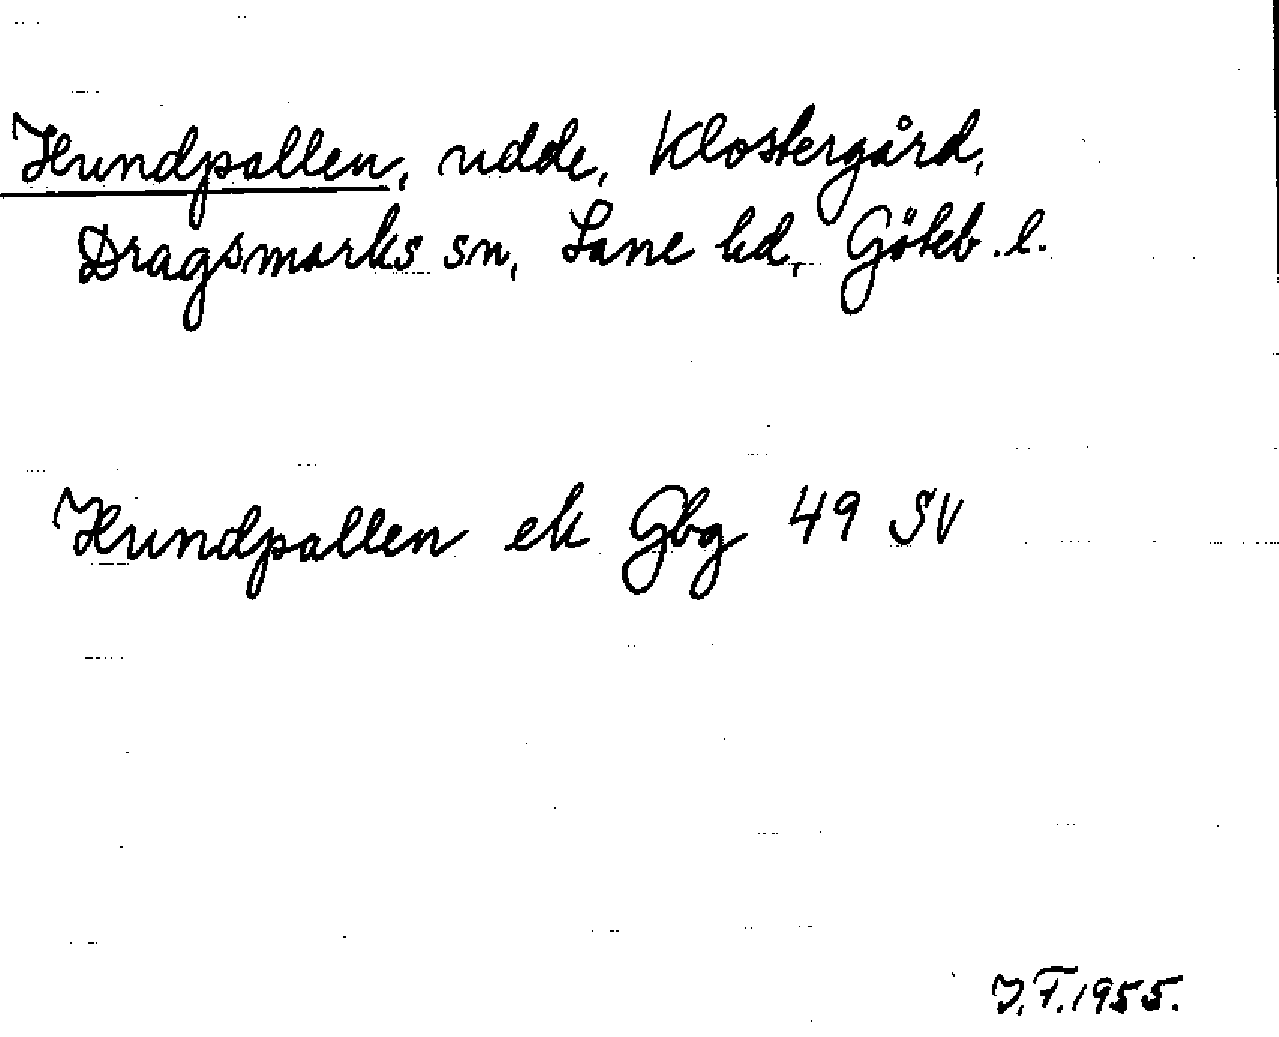 Hundpallen, udde, Klostergård,
Dragsmarks sn, Lane hd, Göteb. l.
Hundpallen ek Gbg 49 SV
J.F. 1955.